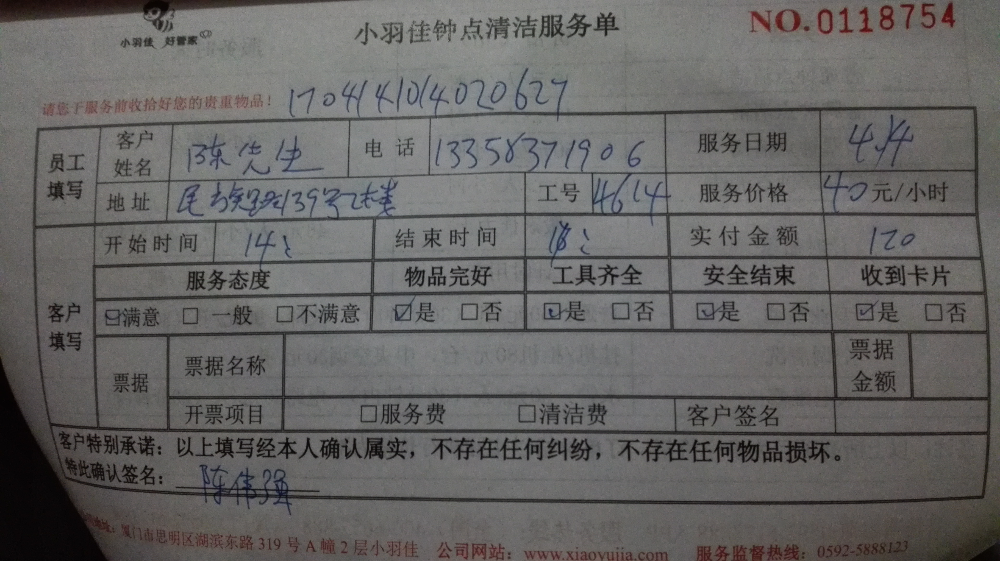 小羽佳 好管家
小羽佳钟点清洁服务单
NO.0118754
请您于服务前收拾好您的贵重物品!
1704141014020627
员工填写 客户姓名 陈先生 电话 13358371906 服务日期 4.14
地址 139号 工号 4614 服务价格 40元/小时
客户填写 开始时间 14: 结束时间 实付金额 120
服务态度 物品完好 工具齐全 安全结束 收到卡片
☑满意 □一般 □不满意 ☑是 □否 ☑是 □否 ☑是 □否 ☑是 □否
票据 票据名称 票据金额
开票项目 □服务费 □清洁费 客户签名
客户特别承诺:以上填写经本人确认属实,不存在任何纠纷,不存在任何物品损坏。
特此确认签名: 陈伟强
地址:厦门市思明区湖滨东路319号A幢2层小羽佳 公司网站:www.xiaoyujia.com 服务监督热线:0592-5888123